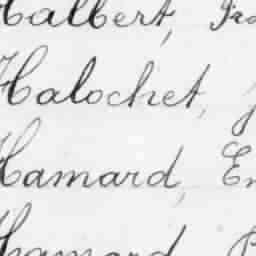 Halbert, Fra
Halochet, J
Hamard, Er
Hamard